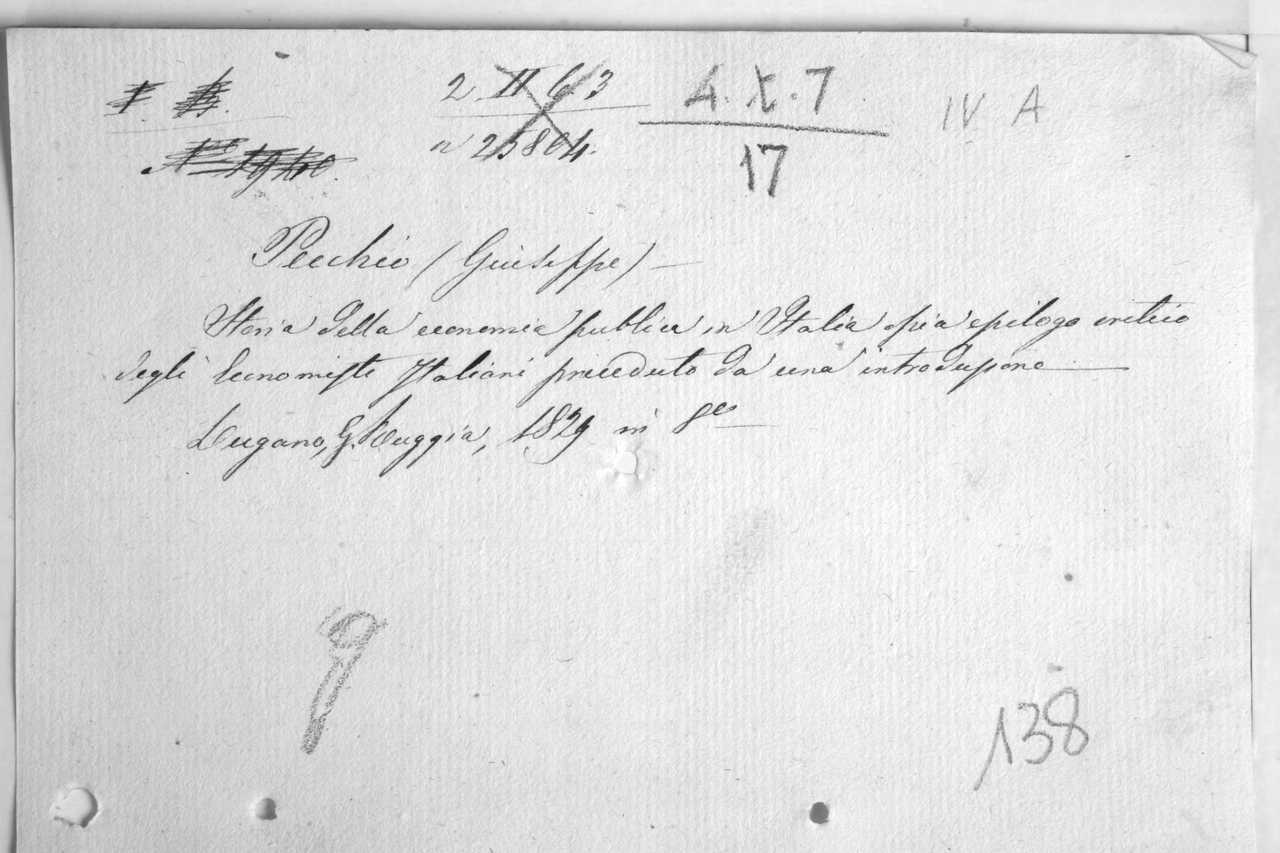 2 II 6 3
n 25804.
4. X. 7
17
IV A
Pecchio (Giuseppe) —
Storia della economia publica in Italia ossia epilogo critico
degli Economisti Italiani preceduto da una introduzione
Lugano, G. Ruggia, 1829 in 8º
138